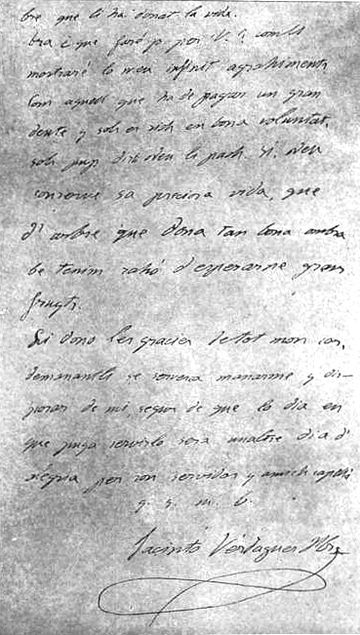 bre que li ha donat la vida.
bra ¿que faré jo per V.?
mostraré lo meu infinit agrahiment
Com aquell que ha de pagar un gran
deute y sols es rich en bona voluntat,
sols puch dir Deu li pach. Si, Deu
conserve sa preciosa vida, que
d' arbre que dona tan bona ombra
be tenim rahó d' esperarne grans
fruyts.
Li dono les gracies de tot mon cor,
demanantli se servesca manarme y dis-
posar de mi segur de que lo dia en
que puga servirlo sera un altre dia d'
alegria per son servidor y amich
q. s. m. b.
Jacinto Verdaguer Pbre